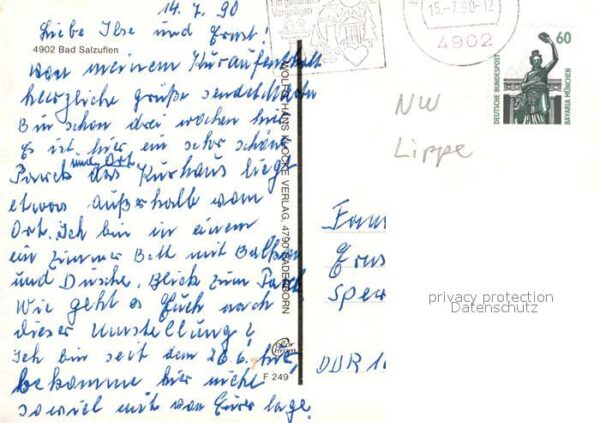 14.7.90
Liebe Ilse und Ernst!
4902 Bad Salzuflen
von meinem Kuraufenthalt
herzliche Grüße sendet
Bin schon drei Wochen hier
Es ist hier ein sehr schöner
Park und Ort das Kurhaus liegt
etwas außerhalb vom
Ort. Ich bin in einem
ein Zimmer Bett mit Balkon
und Dusche. Blick zum Park
Wie geht es Euch nach
dieser Umstellung?
Ich bin seit dem 26.6. hier,
bekomme hier nicht
soviel mit von Eurer Lage.
VERLAG, 4790 PADERBORN
F 249
Vergnügen
15.-7.90-12
4902
60
DEUTSCHE BUNDESPOST
BAVARIA MÜNCHEN
NW
Lippe
Fam
Erns
Sper
DDR 1
privacy protection
Datenschutz